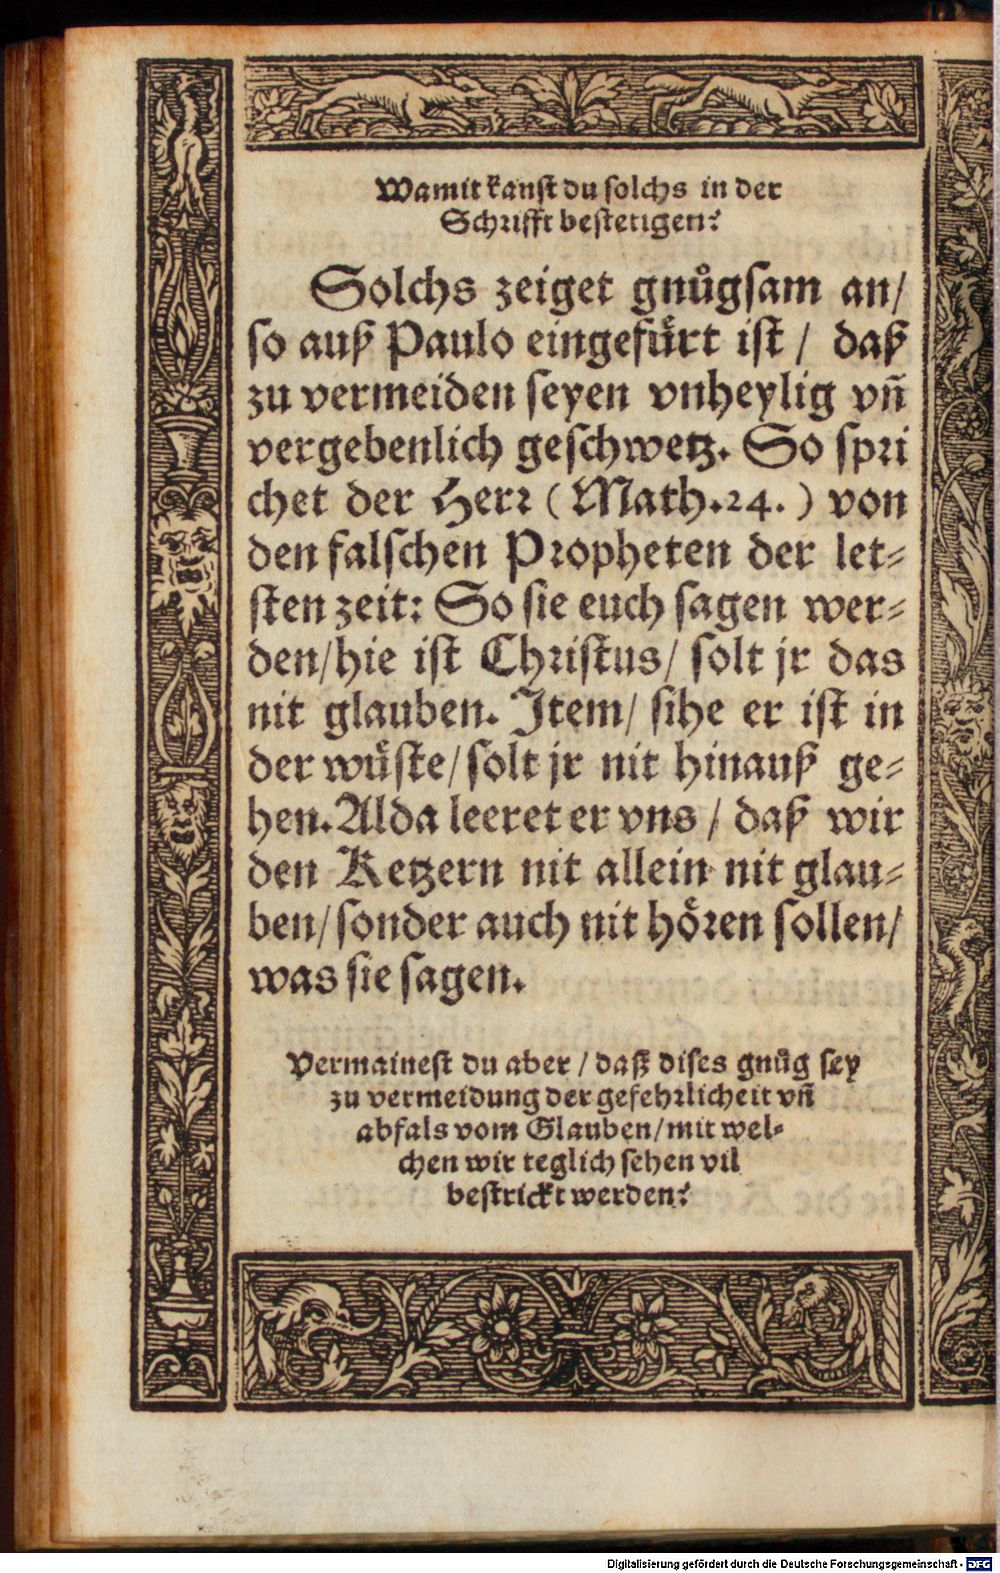 Wamit kanst du solchs in der
Schrifft bestetigen?
Solchs zeiget gnůgsam an/
so auß Paulo eingefürt ist / daß
zu vermeiden seyen vnheylig vñ
vergebenlich geschwetz. So spri
chet der Herr (Math.24.) von
den falschen Propheten der let-
sten zeit: So sie euch sagen wer-
den/hie ist Christus/ solt jr das
nit glauben. Item/ sihe er ist in
der wůste/solt jr nit hinauß ge-
hen. Alda leeret er vns / daß wir
den Ketzern nit allein nit glau-
ben/sonder auch nit hören sollen/
was sie sagen.
Vermainest du aber / daß dises gnůg sey
zu vermeidung der gefehrlicheit vñ
abfals vom Glauben/mit wel-
chen wir teglich sehen vil
bestrickt werden?
Digitalisierung gefördert durch die Deutsche Forschungsgemeinschaft - DFG